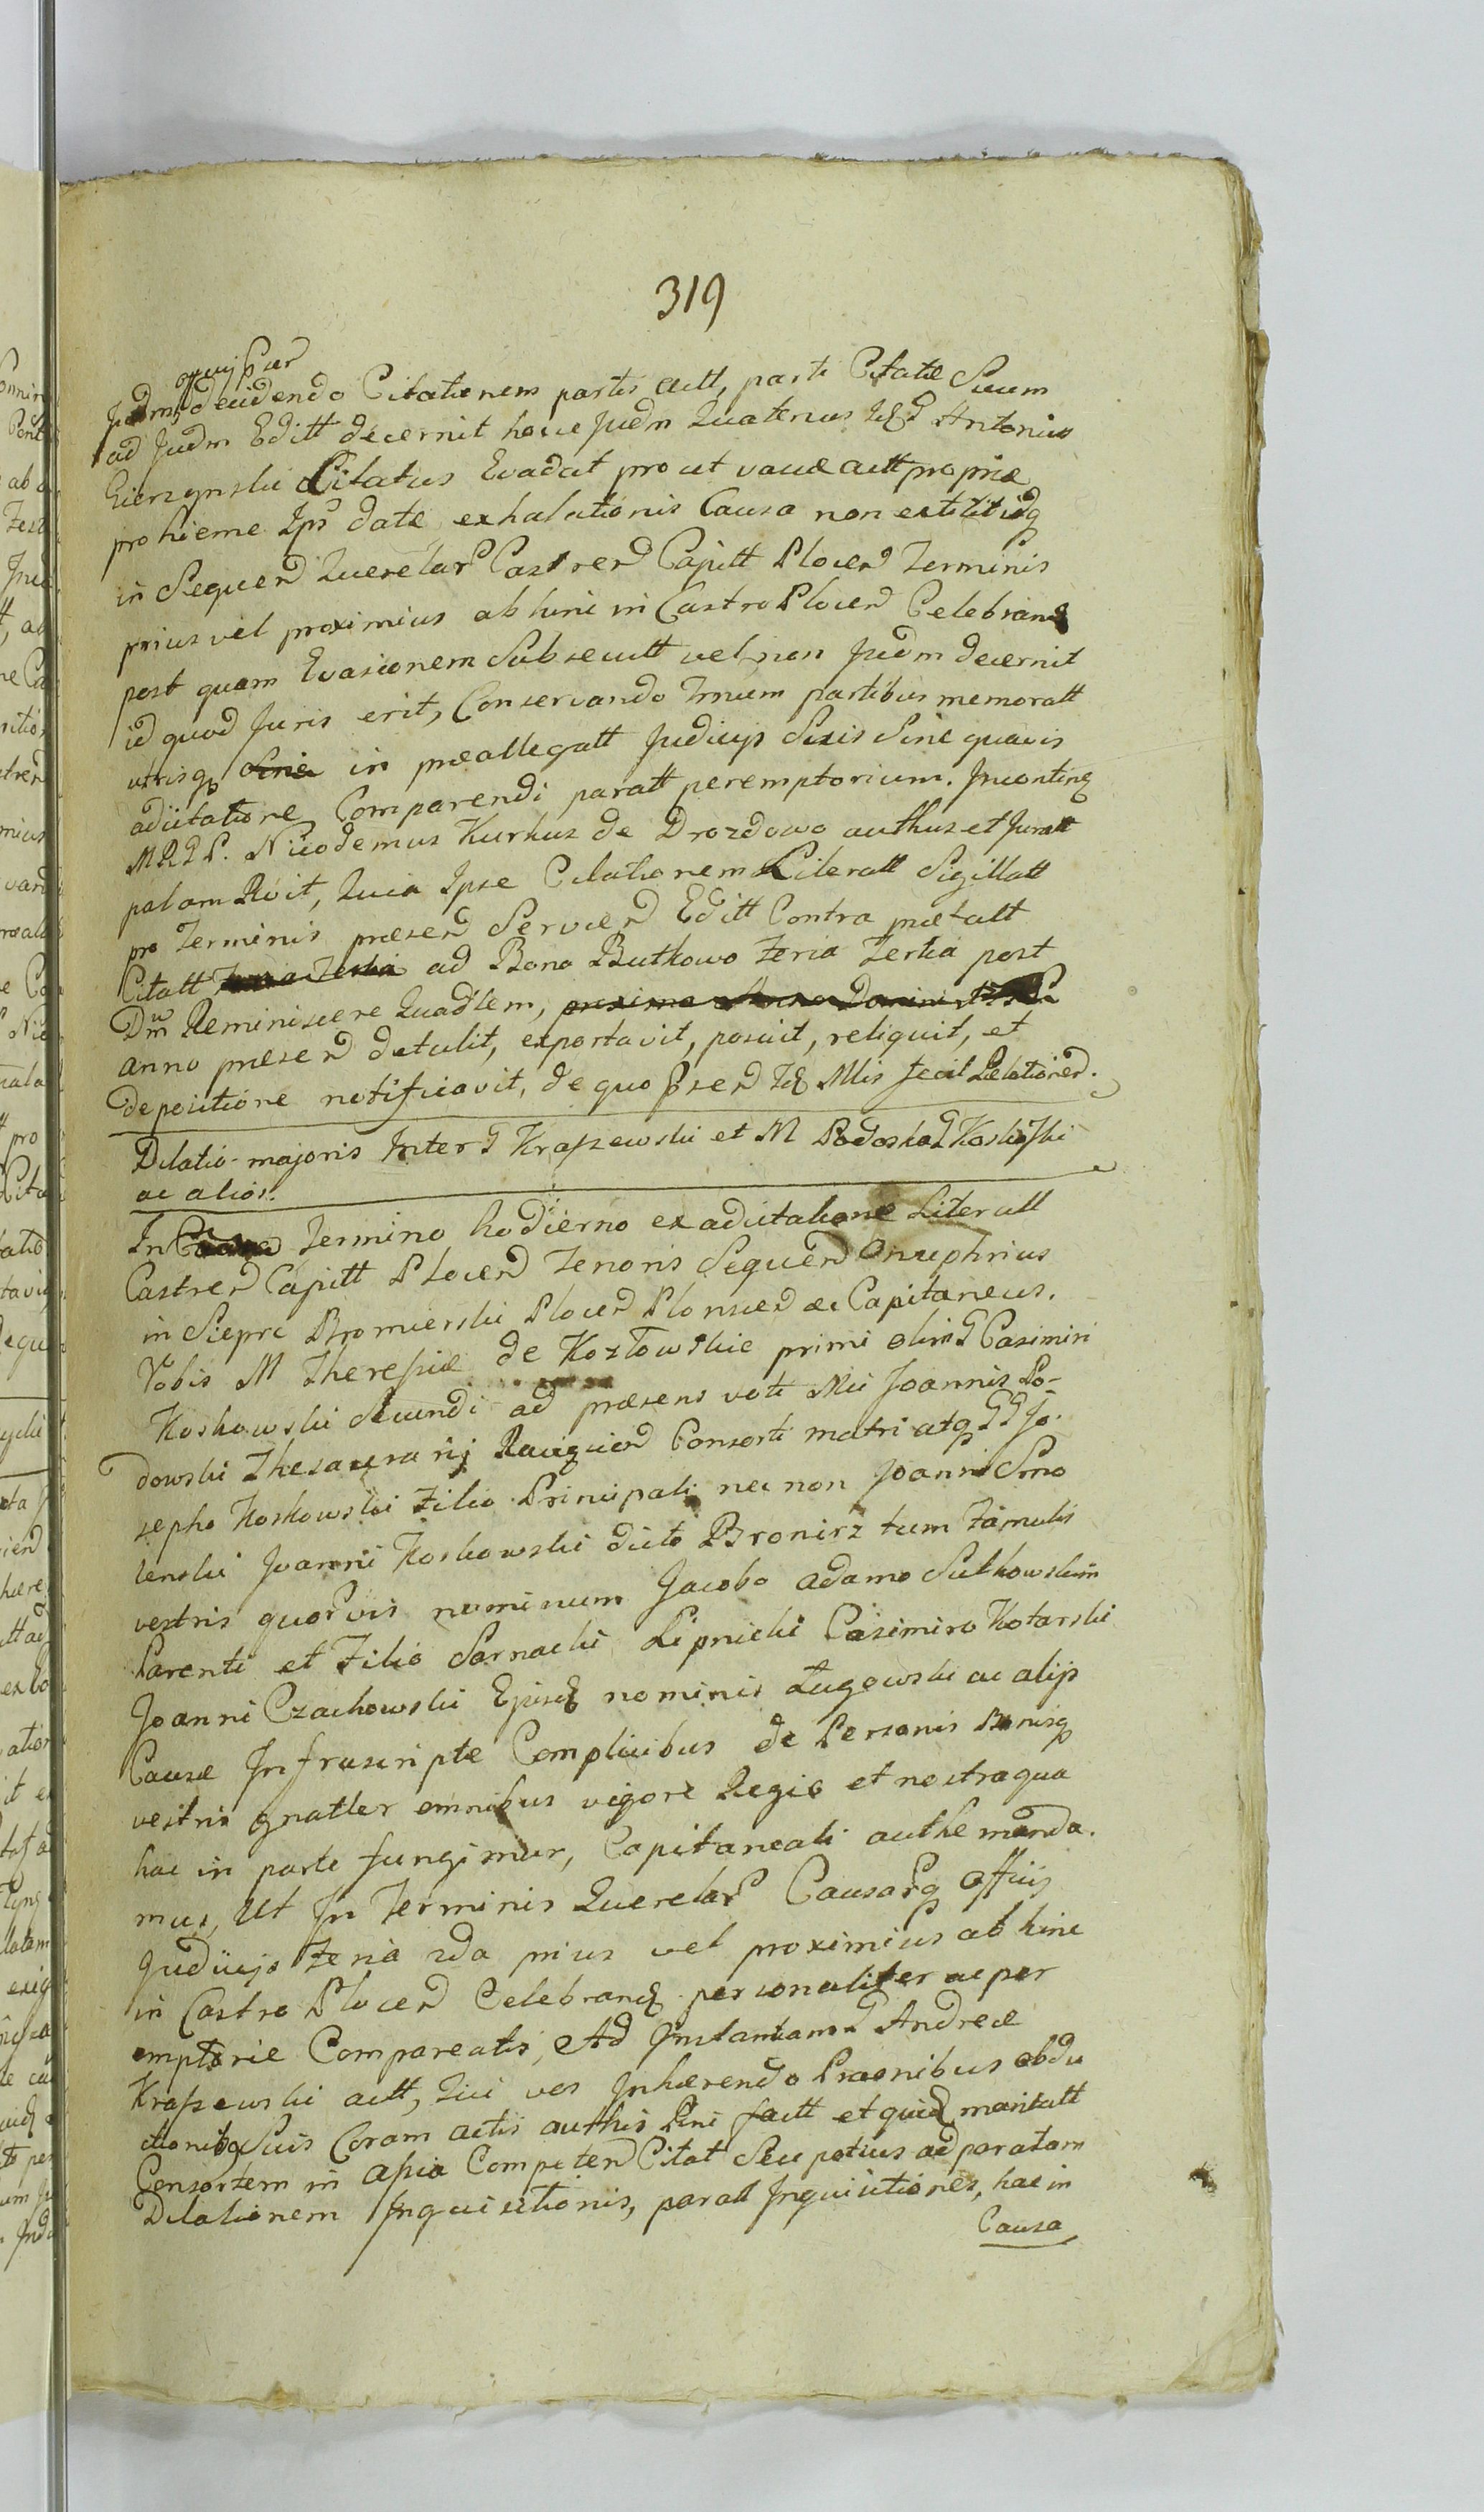 319
Judm decidendo Citationem partis actt, parti Citatæ Suum
ad Judm Editt decernit hocce Judm Quatenus Antonius
Gierzynski Citatus Evadat prout vacæ actt propriæ
pro hieme Ips date exhalationis Causa non extitit idq
in Sequend Querelar Castrend Capitt Plocen Terminis
prius vel proximius ab hinc in Castro Plocen Celebrand
post quam Evasionem Subsecutt vel non Judm decernit
id quod Juris erit, Conservando Trnum partibus memoratt
utrisq in præallegatt Judicijs Suis Sine quavis
adcitatione Comparendi paratt peremptorium. Incontinen
MRGP. Nicodemus Kurkus de Drozdowo authus et Juratt
palam Rvit, Quia Ipse Citationem Literatt Sigillatt
pro Terminis præsen Servien Editt Contra prætatt
Citatt ad Bona Butkowo Feria Tertia post
Dm Reminiscere Quadlem,
anno præsen detulit, exportavit, posuit, reliquit, et
depositione notificavit, de quo præsen Mlis fecit Relationen.
Dilatio majoris Inter G Kraszewski et M Podoska G Koskowski
ac alios.
In Termino hodierno ex adcitatione Literatt
Castren Capitt Plocen Tenoris Sequen Onuphrius
in Sieprc Bromierski Plocen Plonscen &c Capitaneus.
Vobis M Theresiæ de Kozłowskie primi olim G Casimiri
Koskowski Secundi ad præsens voti Mci Joannis Po-
dowski Thesaurarij Raciązien Consorti matri atq GG Jo-
sepho Koskowski Filio Principali nec non Joanni Smo
lenski Joanni Koskowski dicto Bronirz tum Famulis
vestris quorvis nominum Jacobo adamo Sutkowskim
Parenti et Filio Sarnacki Lipnicki Casimiro Kotarski
Joanni Czachowski Ejusd nominis Ługowski ac alijs
Causæ Infrascriptæ Complicibus de Personis Bonisq
vestris gnatler omnibus vigore Regia et nostra qua
hac in parte fungimur, Capitaneali authe manda.
mus, Ut In Terminis Querelar Causarq Officij
Judicijs Feria 2da prius vel proximius ab hinc
in Castro Plocen Celebrand personaliter ac per
emptorie Compareatis, Ad Instantiam G Andreæ
Kraszewski actt, Qui vos Inhærendo Præonibus abdu
ctionibq Suis Coram actis authis Pni factt et quid maritatt
Consortem in assia Competen Citat Seu potius ad paratam
Dilationem Inquisitionis, paratt Inquisitiones, hac in
Causa